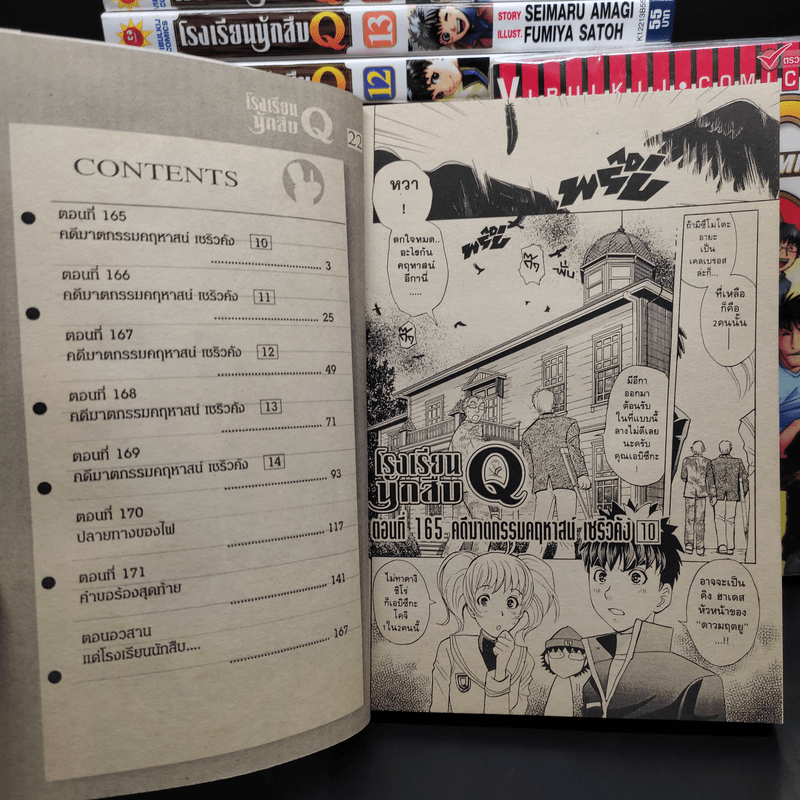 IBULKIJ
COMICS
โรงเรียนนักสืบ Q
13
STORY SEIMARU AMAGI
ILLUST. FUMIYA SATOH
55
บาท
โรงเรียนนักสืบ Q
12
VIBULKIJ COMIC
ตรวจ
โรงเรียน
นักสืบ Q
22
CONTENTS
ตอนที่ 165
คดีฆาตกรรมคฤหาสน์ เซริวคัง 10
3
ตอนที่ 166
คดีฆาตกรรมคฤหาสน์ เซริวคัง 11
25
ตอนที่ 167
คดีฆาตกรรมคฤหาสน์ เซริวคัง 12
49
ตอนที่ 168
คดีฆาตกรรมคฤหาสน์ เซริวคัง 13
71
ตอนที่ 169
คดีฆาตกรรมคฤหาสน์ เซริวคัง 14
93
ตอนที่ 170
ปลายทางของไฟ
117
ตอนที่ 171
คำขอร้องสุดท้าย
141
ตอนอวสาน
แด่โรงเรียนนักสืบ....
167
หวา
!
พรึ่บ
พรึ่บ
ตกใจหมด..
อะไรกัน
คฤหาสน์
อีกานี่
.....
พึ่บ
ถ้ามิซึโมโตะ
อายะ
เป็น
เคลเบรอส
ล่ะก็...
ที่เหลือ
ก็คือ
2คนนั้น
มีอีกา
ออกมา
ต้อนรับ
ในที่แบบนี้
ลางไม่ดีเลย
นะครับ
คุณเอบิซึกะ
!
โรงเรียน
นักสืบ Q
ตอนที่ 165 คดีฆาตกรรมคฤหาสน์ เซริวคัง 10
ไม่ทาคางิ
ชิโร่
ก็เอบิซึกะ
โคจิ
1ใน2คนนี้
อาจจะเป็น
คิง ฮาเดส
หัวหน้าของ
"ดาวมฤตยู"
...!!